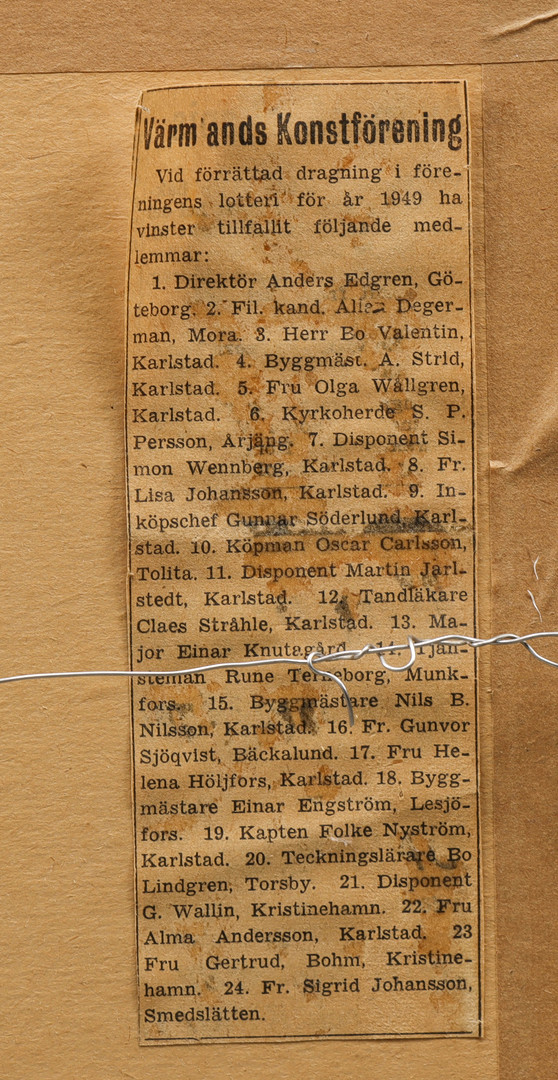 Värm ands Konstförening
Vid förrättad dragning i före-
ningens lotteri för år 1949 ha
vinster tillfallit följande med-
lemmar:
1. Direktör Anders Edgren, Gö-
teborg. 2. Fil. kand. Allan Deger-
man, Mora. 3. Herr Bo Valentin,
Karlstad. 4. Byggmäst. A. Strid,
Karlstad. 5. Fru Olga Wållgren,
Karlstad. 6. Kyrkoherde S. P.
Persson, Arjäng. 7. Disponent Si-
mon Wennberg, Karlstad. 8. Fr.
Lisa Johansson, Karlstad. 9. In-
köpschef Gunnar Söderlund, Karl-
stad. 10. Köpman Oscar Carlsson,
Tolita. 11. Disponent Martin Jarl-
stedt, Karlstad. 12. Tandläkare
Claes Stråhle, Karlstad. 13. Ma-
jor Einar Knutsgård. 14. Tjän-
steman Rune Terneborg, Munk-
fors. 15. Byggmästare Nils B.
Nilsson, Karlstad. 16. Fr. Gunvor
Sjöqvist, Bäckalund. 17. Fru He-
lena Höljfors, Karlstad. 18. Bygg-
mästare Einar Engström, Lesjö-
fors. 19. Kapten Folke Nyström,
Karlstad. 20. Teckningslärare Bo
Lindgren, Torsby. 21. Disponent
G. Wallin, Kristinehamn. 22. Fru
Alma Andersson, Karlstad. 23
Fru Gertrud, Bohm, Kristine-
hamn. 24. Fr. Sigrid Johansson,
Smedslätten.